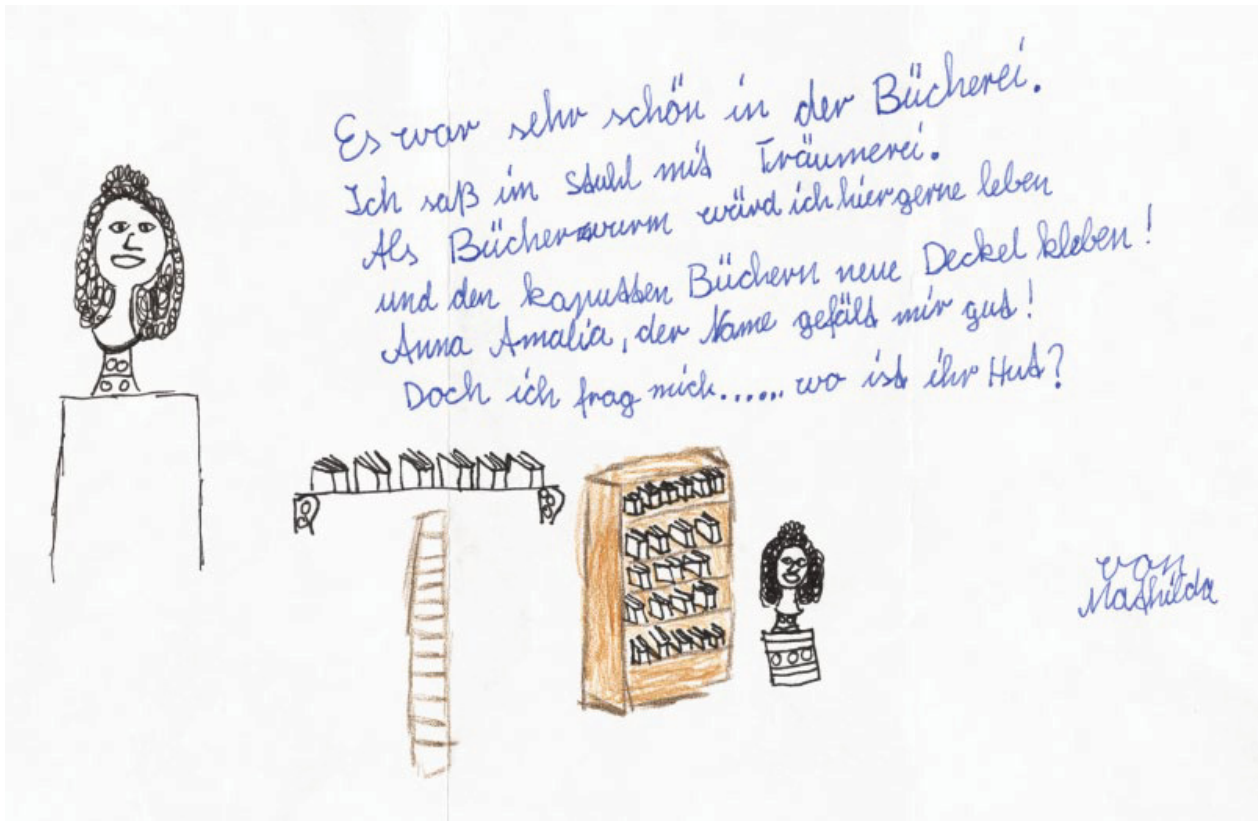 Es war sehr schön in der Bücherei.
Ich saß im Stuhl mit Träumerei.
Als Bücherwurm würd ich hier gerne leben
und den kaputten Büchern neue Deckel kleben!
Anna Amalia, der Name gefält mir gut!
Doch ich frag mich...... wo ist ihr Hut?
von
Mathilda